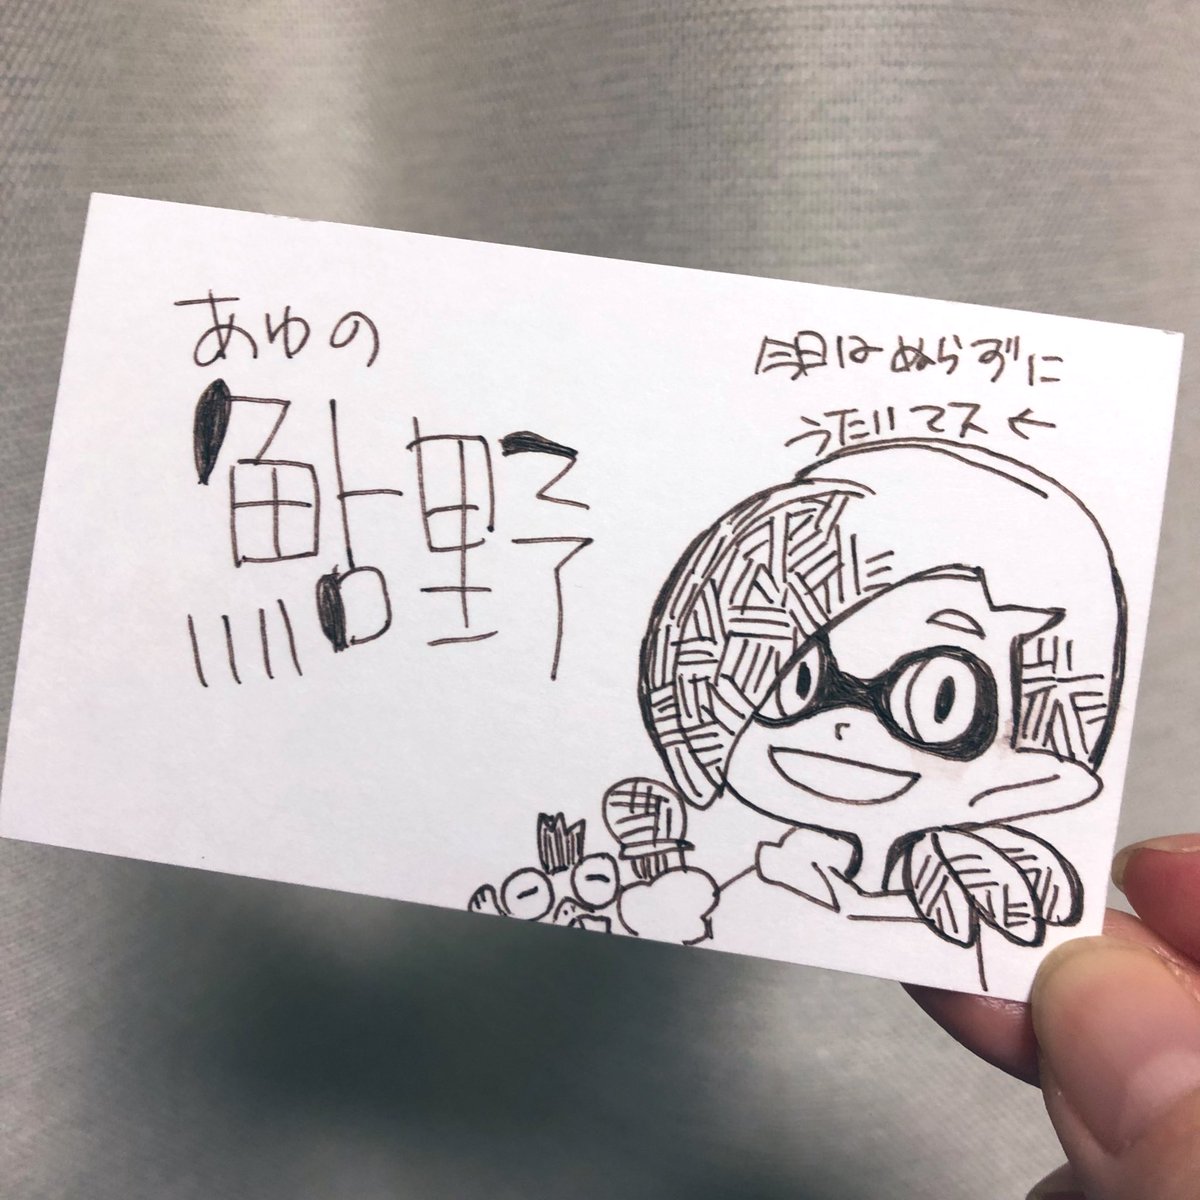 あゆの
鮎野
今日はぬらずに
うたいてス←